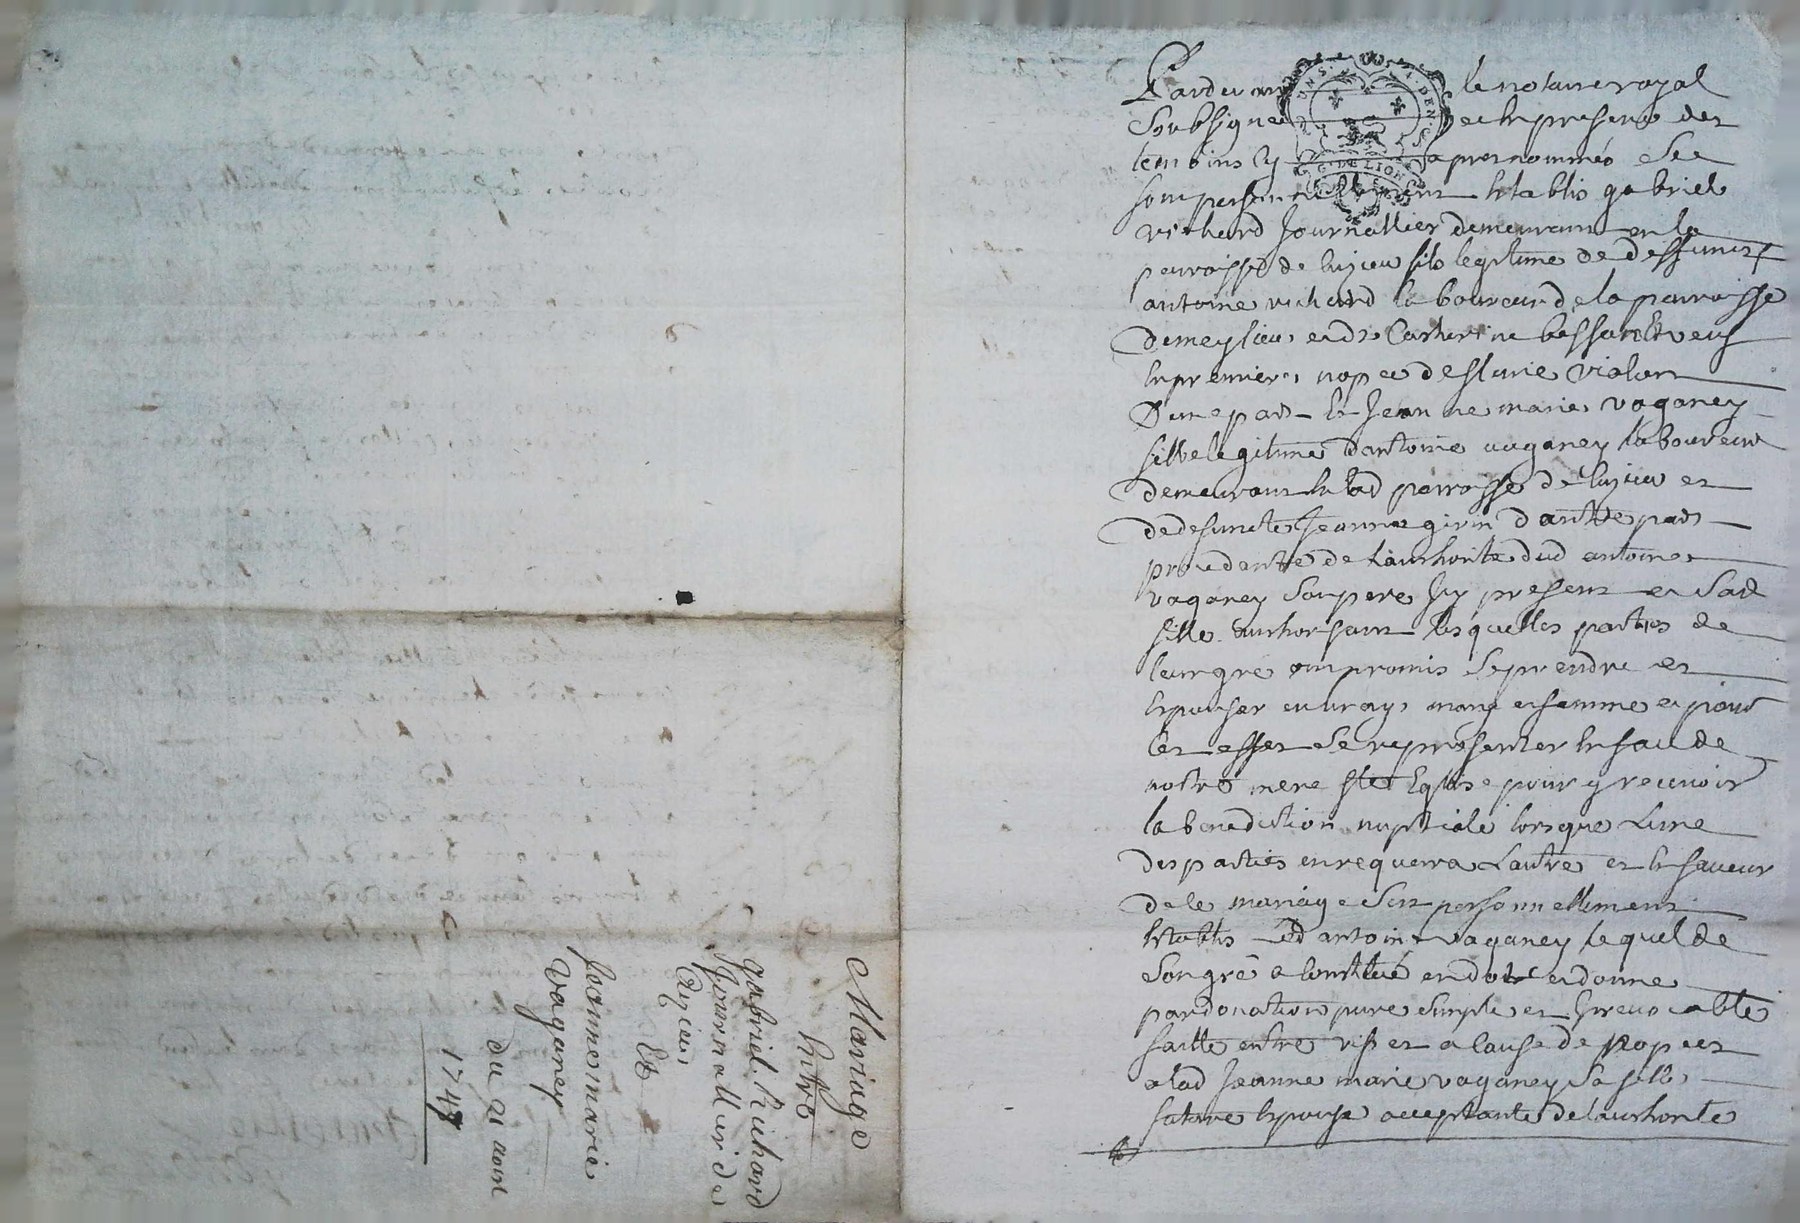 Pardevant le notaire royal
Soubsigné et en presence des
temoins cy apres nommés Se
sont personnellement Etablis gabriel
richard Journallier demeurant en la
parroisse de fils legitime de deffunct
antoine richard laboureur de la parroisse
de meyzieu, et de Catherine veuf
en premieres nopces de
D'une part Et Jeanne marie vaganey
fille legitime d'antoine vaganey laboureur
demeurant en lad parroisse de et
de defuncte Jeanne girin d'autre part
procedante de l'authorité dud antoine
vaganey Son pere Icy present et Sad
fille authorisant lesquelles parties de
leur gré ont promis Se prendre et
Epouser en vray mary et femme et pour
cet effet Se representer En face de
nostre mere ste Eglise pour y recevoir
la benediction nuptiale lorsque L'une
des parties en requerra L'autre et En faveur
de ce mariage Sest personnellement
Etablis Led antoine vaganey lequel de
Son gré a constitué en dot et donne
par donation pure Simple et Irrevocable
faitte entre vifs et a cause de Nopces
a lad Jeanne marie vaganey Sa fille
future Epouse acceptante de l'authorité
Mariage
Entre
gabriel Richard
Journallier de
Et
Jeanne marie
Vaganey
du 21 aout
174